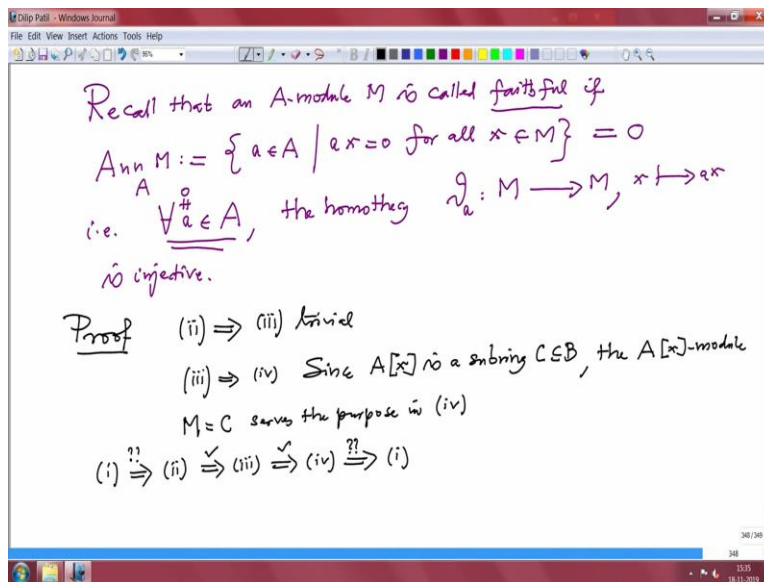 Dilip Patil - Windows Journal
File Edit View Insert Actions Tools Help
Recall that an A-module M is called faithful if
Ann_A M := { a ∈ A | ax = 0 for all x ∈ M } = 0
i.e. ∀ 0 ≠ a ∈ A, the homothecy ϑ_a : M ⟶ M, x ↦ ax
is injective.
Proof (ii) ⇒ (iii) trivial
(iii) ⇒ (iv) Since A[x] is a subring C ⊆ B, the A[x]-module
M = C serves the purpose in (iv)
(i) ⇒?? (ii) ⇒✓ (iii) ⇒✓ (iv) ⇒?? (i)
348/349
348
15:35
18-11-2019